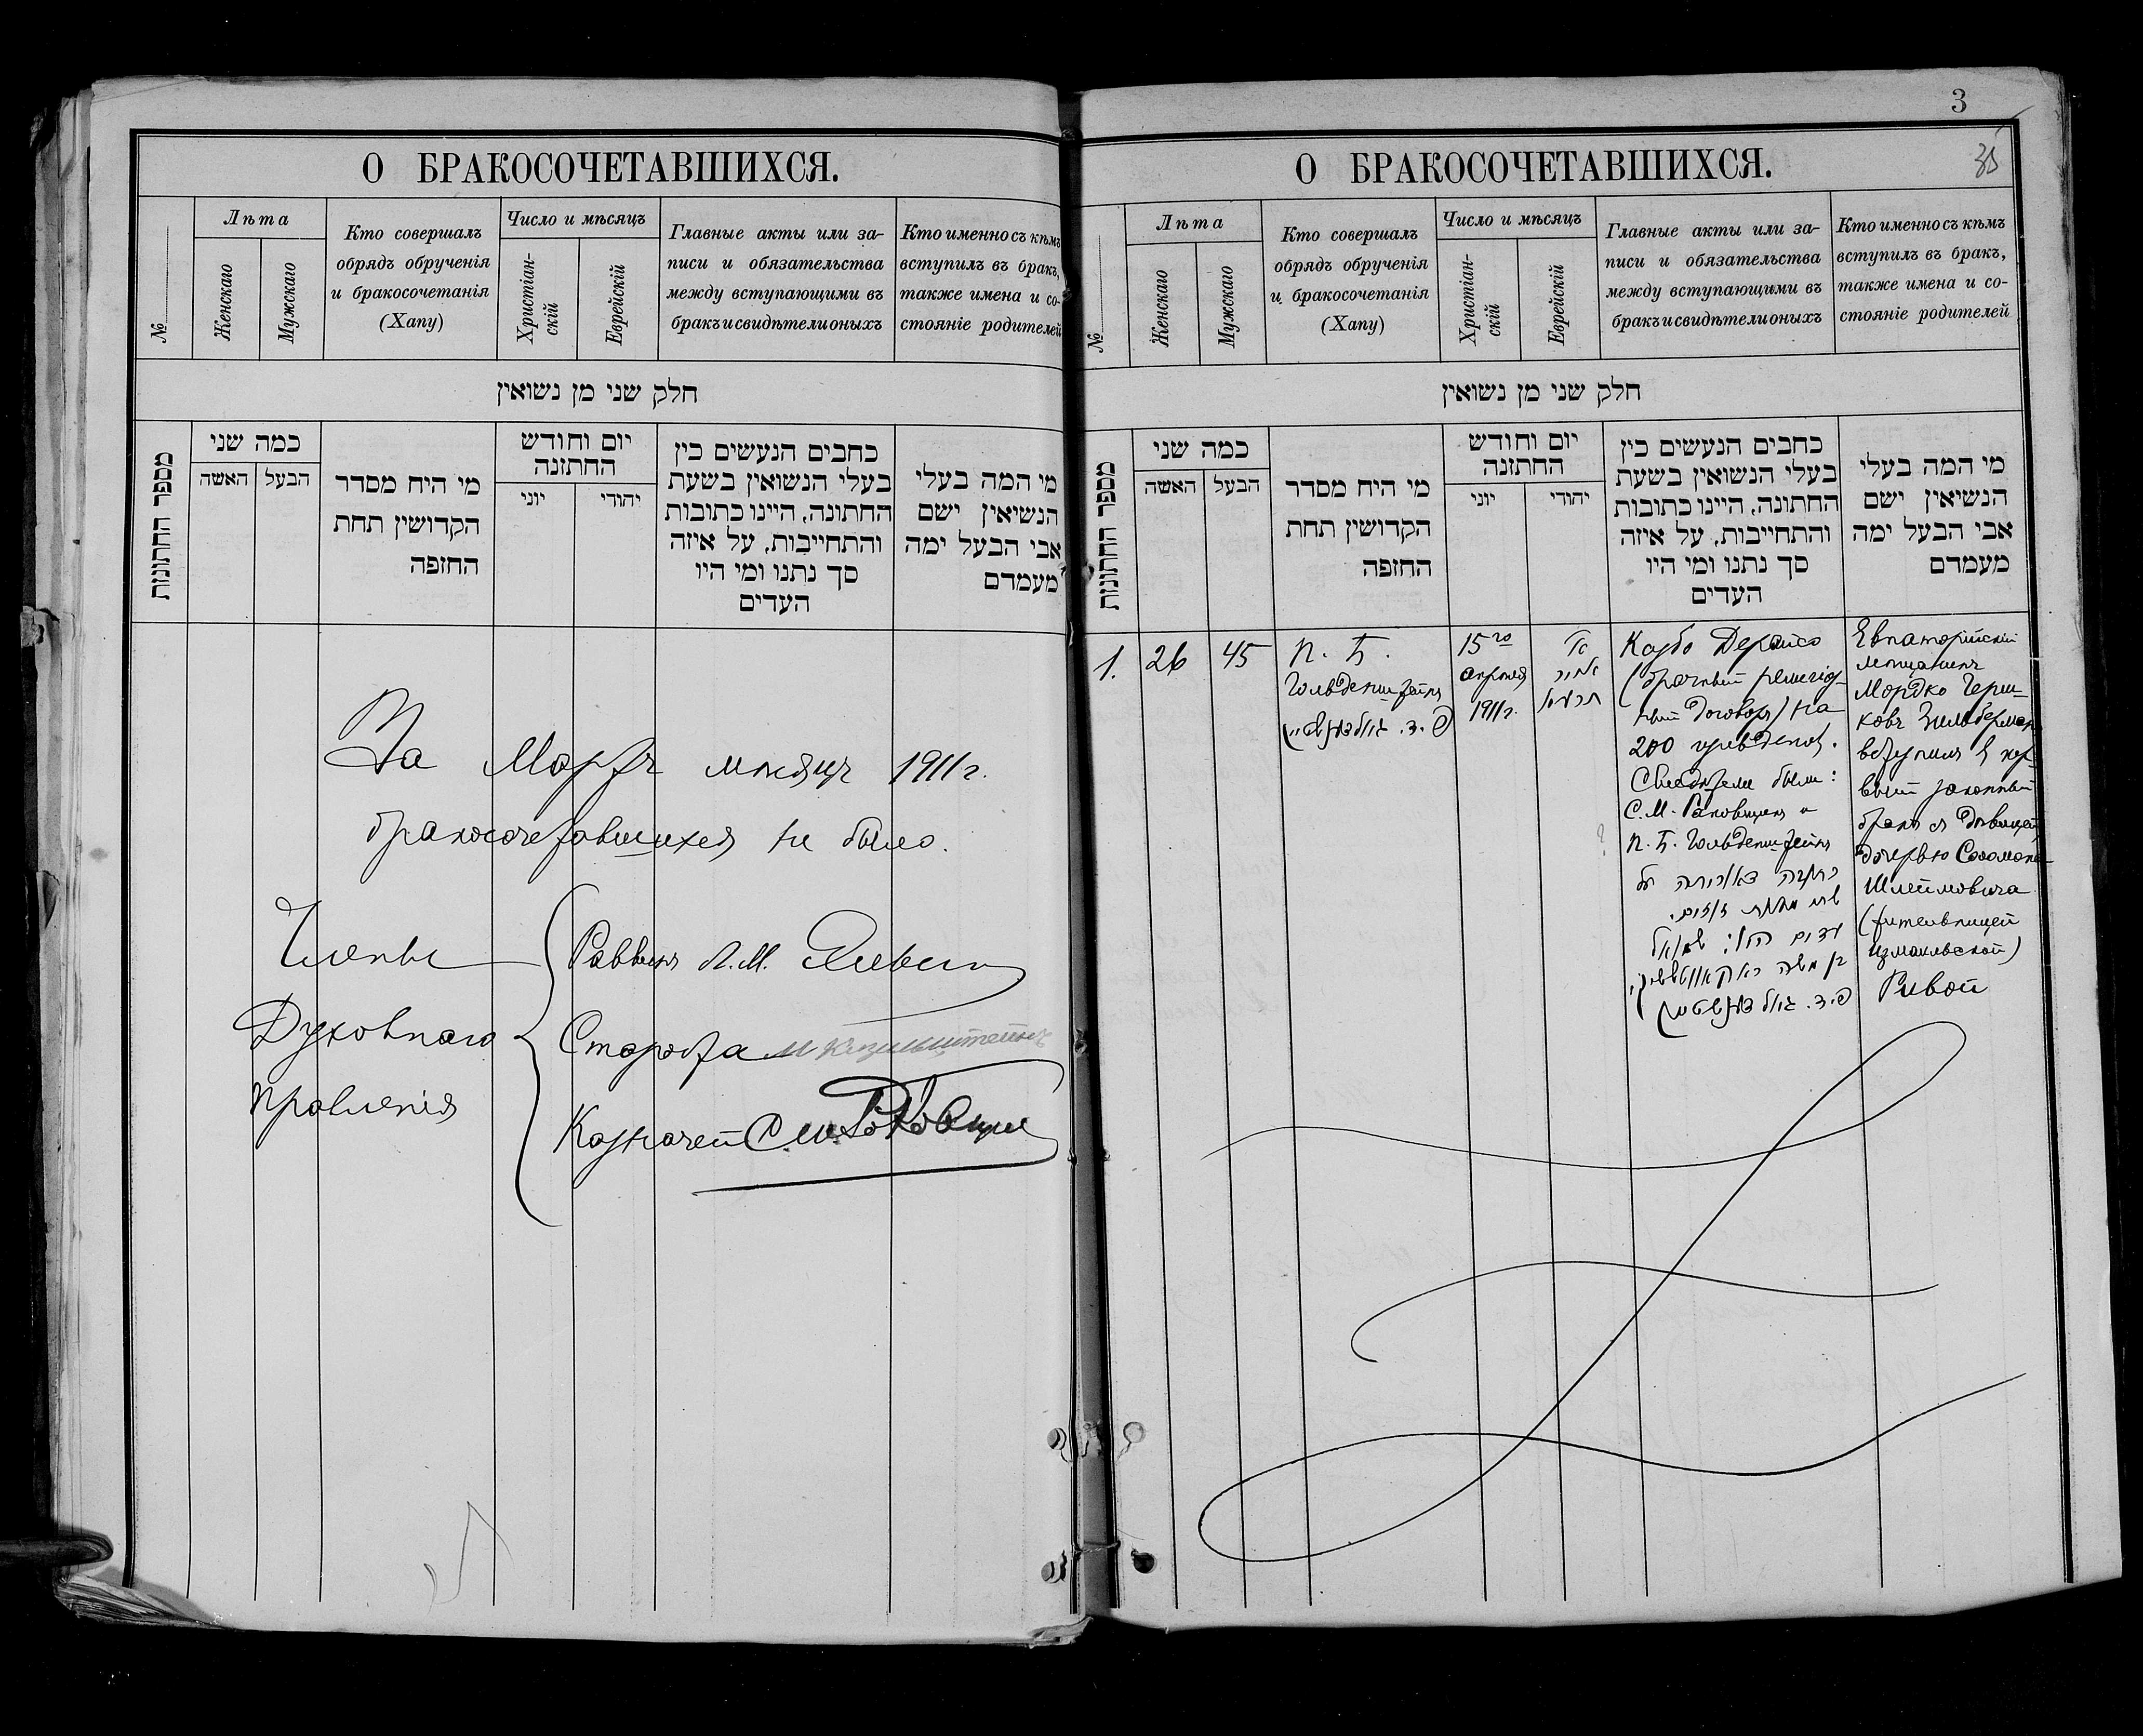 О БРАКОСОЧЕТАВШИХСЯ.
№
Лѣта
Женскаго
Мужскаго
Кто совершалъ
обрядъ обрученія
и бракосочетанія
(Хапу)
Число и мѣсяцъ
Христіан-
скій
Еврейскій
Главные акты или за-
писи и обязательства
между вступающими въ
бракъ и свидѣтели оныхъ
Кто именно съ кѣмъ
вступилъ въ бракъ,
также имена и со-
стояніе родителей
חלק שני מן נשואין
מספר החתונות
כמה שני
האשה
הבעל
מי היח מסדר
הקדושין תחת
החזפה
יום וחודש
החתזנה
יוני
יהודי
כחבים הנעשים כין
בעלי הנשואין בשעת
החתונה, היינו כתובות
והתחייבות, על איזה
סך נתנו ומי היו
העדים
מי המה בעלי
הנשיאין ישם
אבי הבעל ימה
מעמדם
За Мартъ мѣсяцъ 1911 г.
бракосочетавшихся не было.
Члены
Духовнаго
Правленія
Раввинъ
Староста
Казначей
3
35
О БРАКОСОЧЕТАВШИХСЯ.
№
Лѣта
Женскаго
Мужскаго
Кто совершалъ
обрядъ обрученія
и бракосочетанія
(Хапу)
Число и мѣсяцъ
Христіан-
скій
Еврейскій
Главные акты или за-
писи и обязательства
между вступающими въ
бракъ и свидѣтели оныхъ
Кто именно съ кѣмъ
вступилъ въ бракъ,
также имена и со-
стояніе родителей
חלק שני מן נשואין
מספר החתונות
כמה שני
האשה
הבעל
מי היח מסדר
הקדושין תחת
החזפה
יום וחודש
החתזנה
יוני
יהודי
כחבים הנעשים כין
בעלי הנשואין בשעת
החתונה, היינו כתובות
והתחייבות, על איזה
סך נתנו ומי היו
העדים
מי המה בעלי
הנשיאין ישם
אבי הבעל ימה
מעמדם
1.
26
45
П. Б.
Гольденштейнъ
15го
апрѣля
1911 г.
תרע״א
(брачный религіоз-
ный договоръ) на
200
Свидѣтели были:
С. М. Раковщикъ и
П. Б. Гольденштейнъ
Евпаторійскій
мѣщанинъ
Мордко Герш-
ковъ Зильберманъ
вступилъ въ пер-
вый законный
бракъ съ дѣвицей
дочерью Соломона
Шлеймовича
(жительницей
Измаильской)
Ривой